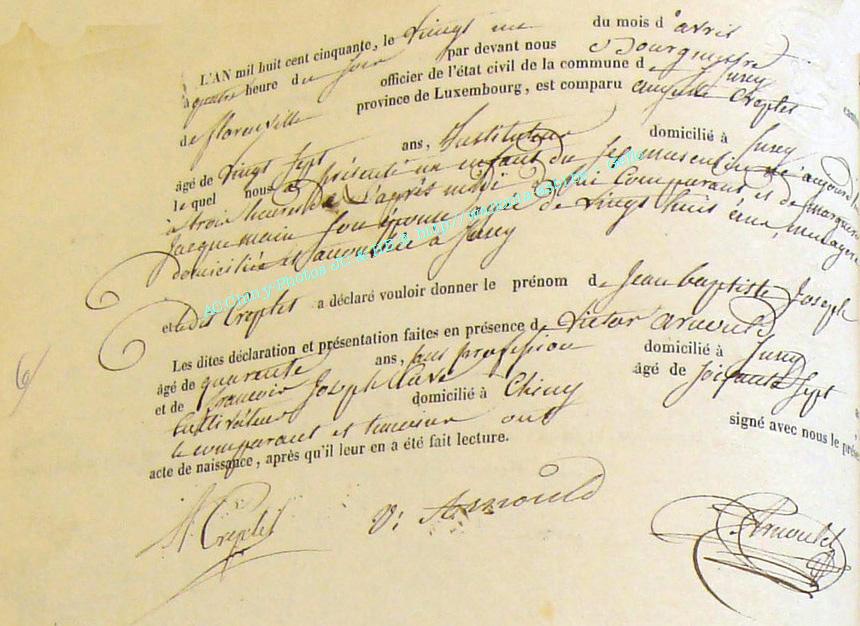 L'AN mil huit cent cinquante, le vingt un du mois d'avril
à quatre heure du soir par devant nous Bourguestre
officier de l'état civil de la commune d Jusey
de florenville province de Luxembourg, est comparu auguste Creplet
âgé de vingt sept ans, Instituteur domicilié à Jusey
le quel nous a présenté un enfant du sexe masculin né aujourd'hui
à trois heures de l'après midi de lui comparant et de marguerite
Jacquemain son épouse âgée de vingt huit ans, menagere
domiciliée à Jusey
et ledit Creplet a déclaré vouloir donner le prénom de Jean baptiste Joseph
Les dites déclaration et présentation faites en présence d Victor arnould
âgé de quarante ans, sans profession domicilié à Jusey
et de francois Joseph âgé de soixante sept
cultivateur domicilié à Chiny
le comparant et temoins ont signé avec nous le
acte de naissance, après qu'il leur en a été fait lecture.
Creplet V: Arnould Arnould